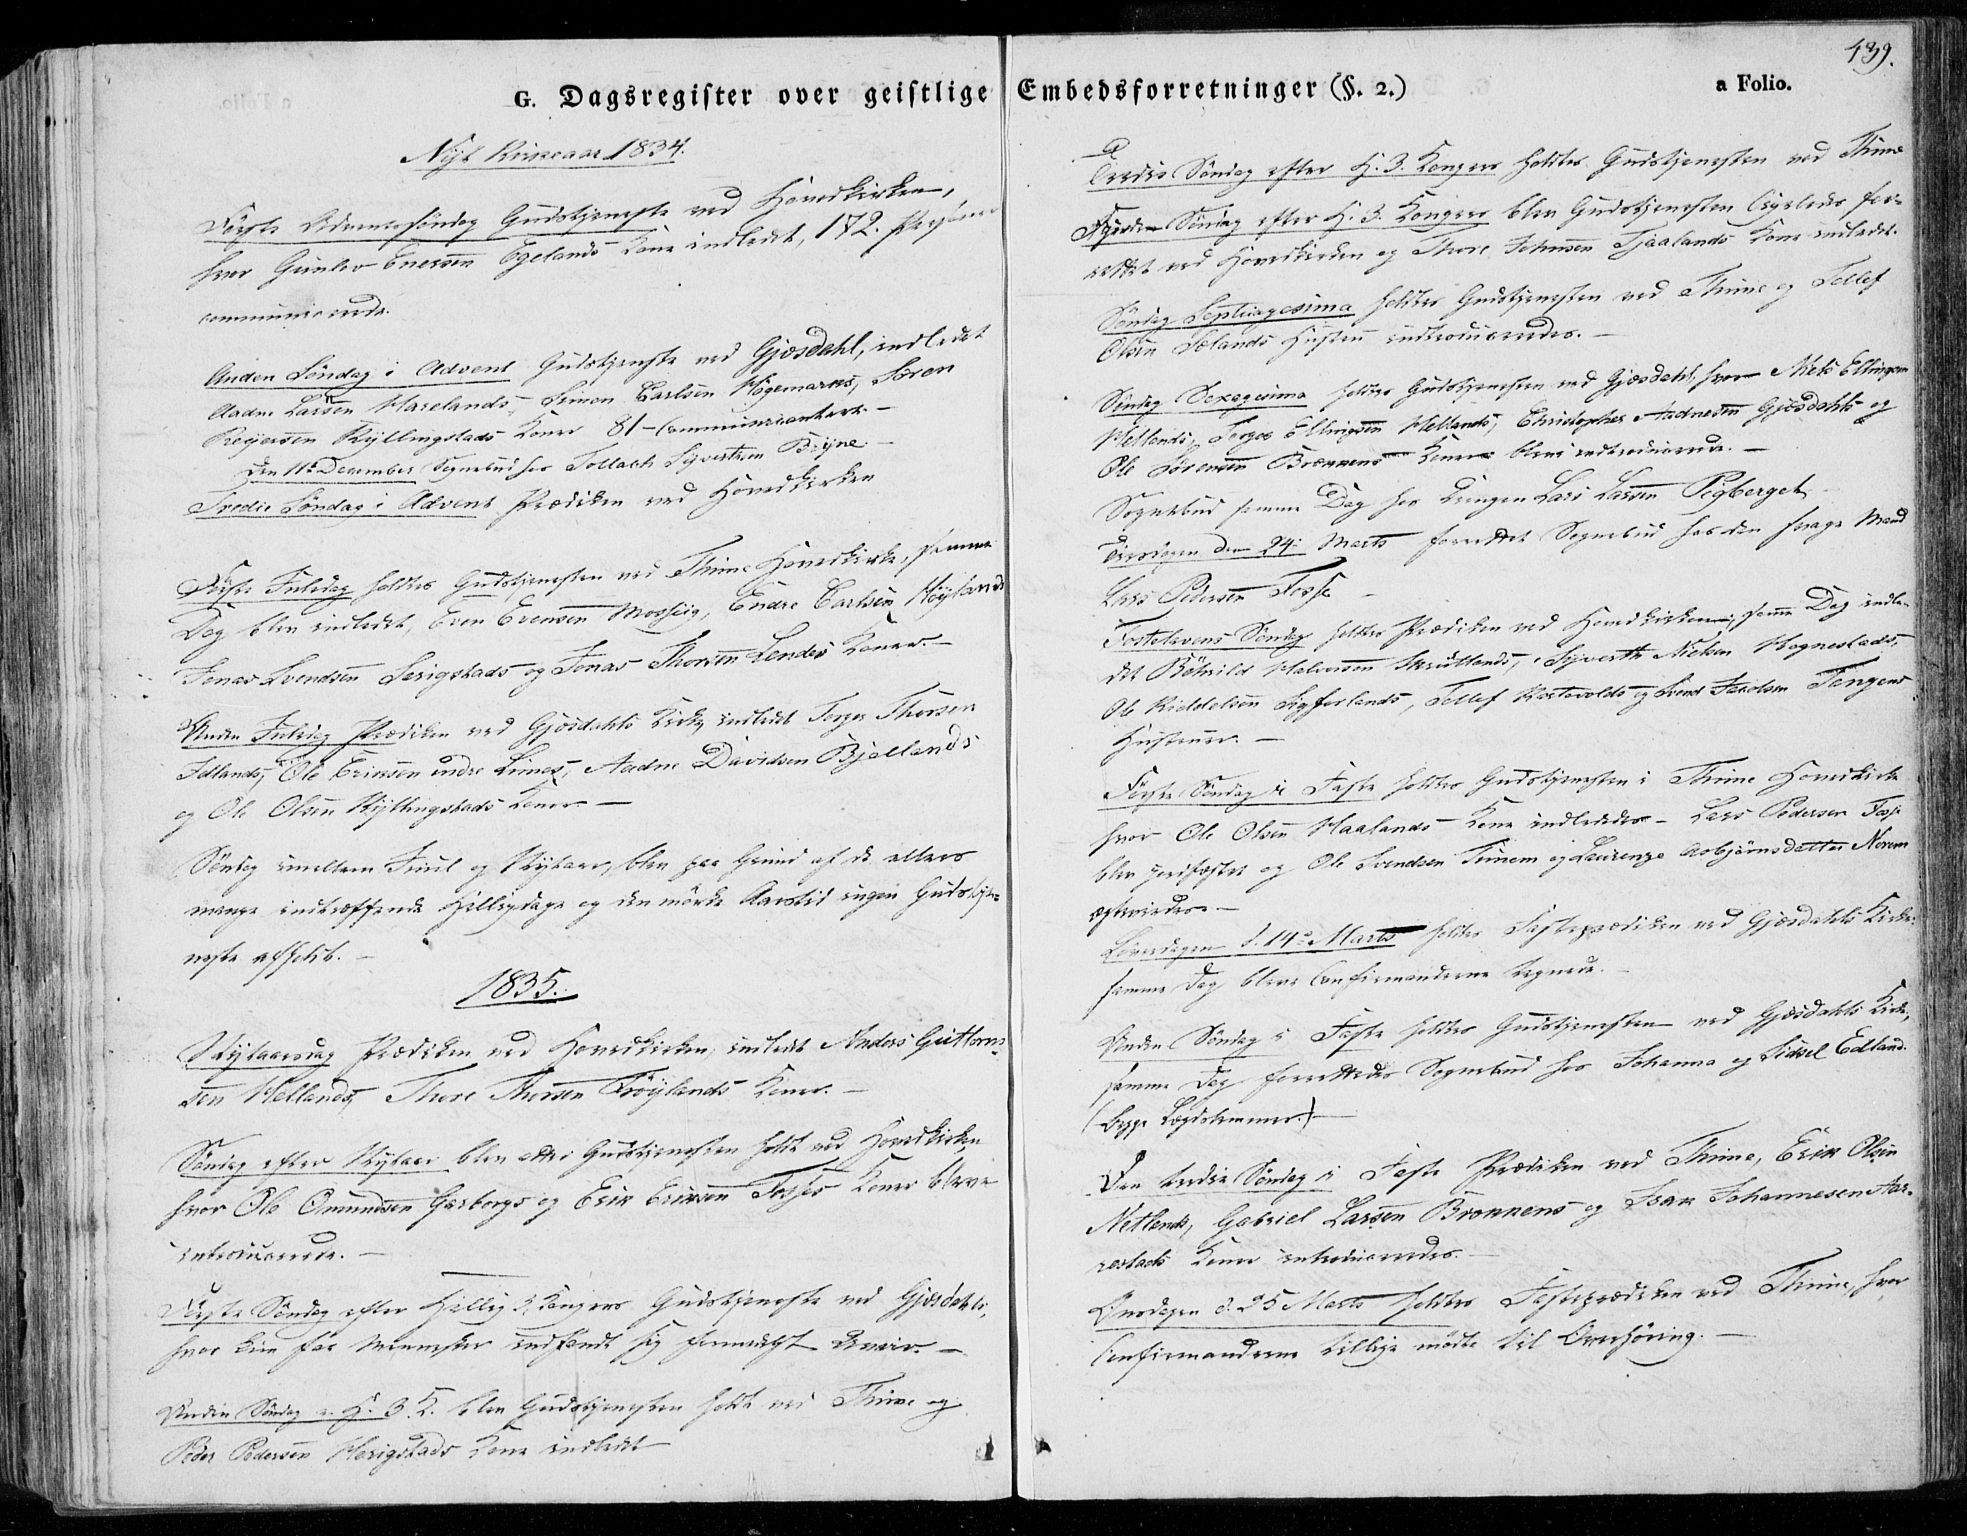 439.
G. Dagsregister over geistlige Embedsforretninger (§. 2.)
a Folio.
Nyt Kirkeaar 1834.
Første Adventssøndag Gudstjeneste ved Hovedkirken,
hvor Gunlov Enersen Egelands Kone indledet, 172. Personer
communicerede.
Anden Søndag i Advent Gudstjeneste ved Gjæsdahl, indledet
Aadne Larsen Harelands, Simon Carlsen Høgemarks, Søren
Reijersen Kyllingstads Koner 81 Communicantere. —
Den 11te December Sognebud hos Tollach Syvertsen Bryne. —
Tredie Søndag i Advent Prædiken ved Hovedkirken
Første Juledag holdtes Gudstjenesten ved Thime Hovedkirke, samme
Dag blev indledet, Even Evensen Mossiig, Endre Carlsen Høylands
Jonas Svendsen Serigstads og Jonas Thorsen Lendes Koner. —
Anden Juledag Prædiken ved Gjæsdahls Kirke, indledt Torger Thorsen
Edlands, Ole Eriksen indre Limes, Aadne Davidsen Bjellands
og Ole Olsen Kyllingstads Koner —
Søndag imellem Juul og Nytaar, blev paa Grund af de ellers
mange indtræffende Helligdage og den mørke Aarstid ingen Gudstje-
neste afholdt. —
1835.
Nytaarsdag Prædiken ved Hovedkirken, indledt Anders Guttorm-
sen Hellands, Thore Thorsen Frøylands Koner. —
Søndag efter Nytaar blev atter Gudstjenesten holdt ved Hovedkirken,
hvor Ole Omundsen Garborgs og Erik Eriksen Fosses Koner bleve
introducerede. —
Første Søndag efter Hellig 3 Kongers Gudstjeneste ved Gjæsdahls,
hvor kun faa Mennesker indfandt sig formedelst Uveir. —
Anden Søndag e. H. 3 K. blev Gudstjenesten holdt ved Thime og
Peder Pedersen Herigstads Kone indledt
Tredie Søndag efter H. 3. Konger holdtes Gudstjenesten ved Thime
Fjerde Søndag efter H. 3. Konger blev Gudstjenesten ligeledes for-
rettet ved Hovedkirken og Thore Johnsen Tjaalands Kone indledet.
Søndag Septuagesima holdtes Gudstjenesten ved Thime og Tollef
Olsen Sælands Hustru introduceredes. —
Søndag Sexagesima holdtes Gudstjenesten ved Gjæsdahl, hvor Niels Ellingsen
Hellands, Torger Ellingsen Hellands, Christopher Aadnesen Gjæsdahls og
Ole Sørensen Brekkens Koner bleve introducerede. —
Sognebud samme Dag hos Drengen Lars Larsen Pegberget —
Tirsdagen den 24. Marts forrettet Sognebud hos den svage Mand
Lars Pedersen Fosse —
Fastelavens Søndag holdtes Prædiken ved Hovedkirken, samme Dag indle-
det Bøhrild Halvorsen Skrutlands, Syverth Nielsen Hognestads,
Ole Kiddelsen Sigferlands, Tollef Kartavolds og Svend Jacobsen Tengens
Hustruer. —
Første Søndag i Faste holdtes Gudstjenesten i Thime Hovedkirke
hvor Ole Olsen Haalands Kone indlededes — Lars Pedersen Fosse
blev jordfæstet og Ole Svendsen Tunem og Laurenze Asbjørnsdatter Norem
ægteviedes. —
Løverdagen d. 14de Marts holdtes Fasteprædiken ved Gjæsdahls Kirke:
samme Dag bleve Confirmanderne tegnede. —
Anden Søndag i Faste holdtes Gudstjenesten ved Gjæsdahls Kirke,
samme Dag forrettedes Sognebud hos Johanna og Sidsel Edland.
(begge Lægdslemmer.) —
Den tredie Søndag i Faste Prædiken ved Thime, Erik Olsen
Netlands, Gabriel Larsen Brekkens og Isak Johannesen Aar-
restads Koner introduceredes. —
Onsdagen d. 25 Marts holdtes Fasteprædiken ved Thime, hvor
Confirmanderne tillige mødte til Overhøring. —